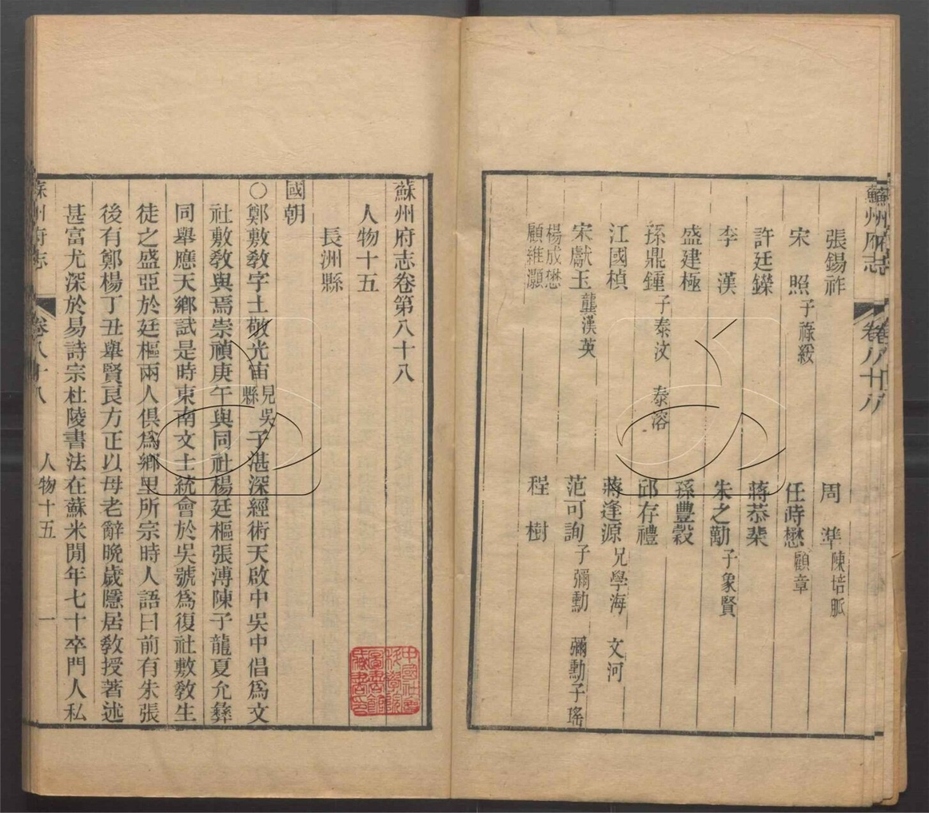 蘇州府志 卷八十八
張錫祚 周準 陳培脈
宋照 子祿綏 任時懋 顧章
許廷鑅 蔣恭棐
李漢 朱之勱 子象賢
盛建極 孫豐穀
孫鼎鍾 子泰汶 泰溶 邱存禮
江國楨 蔣逢源 兄學海 文河
宋獻玉 龔漢英 范可詢 子彌勳 彌勳子瑤
楊成懋 顧維灝 程樹
蘇州府志卷第八十八
人物十五
長洲縣
國朝
〇鄭敷敎字士敬光宙見吳縣子湛深經術天啟中吳中倡爲文
社敷敎與焉崇禎庚午與同社楊廷樞張溥陳子龍夏允彝
同舉應天鄉試是時東南文士統會於吳號爲復社敷敎生
徒之盛亞於廷樞兩人俱爲鄉里所宗時人語曰前有朱張
後有鄭楊丁丑舉賢良方正以母老辭晚歲隱居敎授著述
甚富尤深於易詩宗杜陵書法在蘇米閒年七十卒門人私
蘇州府志 卷八十八 人物十五 一